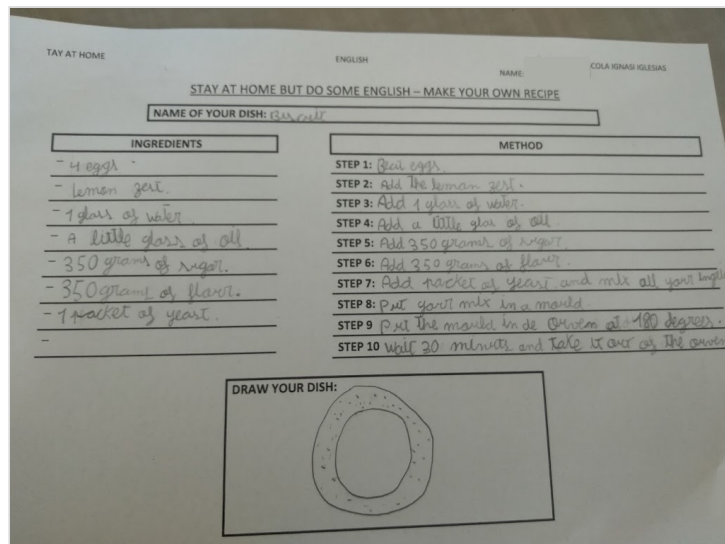 TAY AT HOME
ENGLISH
NAME:
COLA IGNASI IGLESIAS
STAY AT HOME BUT DO SOME ENGLISH – MAKE YOUR OWN RECIPE
NAME OF YOUR DISH: Biscuit
INGREDIENTS
- 4 eggs
- lemon zest.
- 1 glass of water
- A little glass of oil.
- 350 grams of sugar.
- 350 grams of flavr.
- 1 packet of yeast.
-
METHOD
STEP 1: Beat eggs.
STEP 2: Add the leman zest.
STEP 3: Add 1 glass of water.
STEP 4: Add a little glas of oil.
STEP 5: Add 350 grams of sugar.
STEP 6: Add 350 grams of flavr.
STEP 7: Add packet of yeast and mix all your ingr
STEP 8: Put your mix in a mould.
STEP 9 Put the mould in de orvem at 180 degrees.
STEP 10 Wait 30 minuts and take it out of the orven
DRAW YOUR DISH: